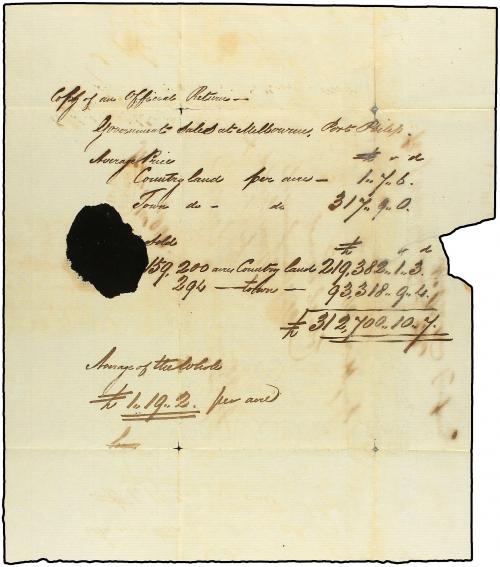 Copy of an Official Return—
Government Sales at Melbourne, Port Philip.
Average Price £ s d
Country land per acre— 1„7„6.
Town do— do 317„9„0.
Sold £ s d
159,200 acres Country land 219,382„1„3.
294 —town— 93,318„9„4.
£ 312,700„10„7.
Average of the Whole
£1„19„2. per acre